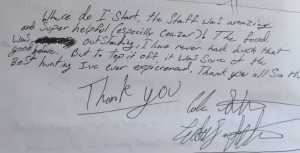 Where do I start, the staff was amazing
and super helpful (especially Ceazar)! The food
was outstanding, I have never had duck that
good before. But to top it off it was some of the
Best hunting Ive ever expierenced. Thank you all So
Thank you